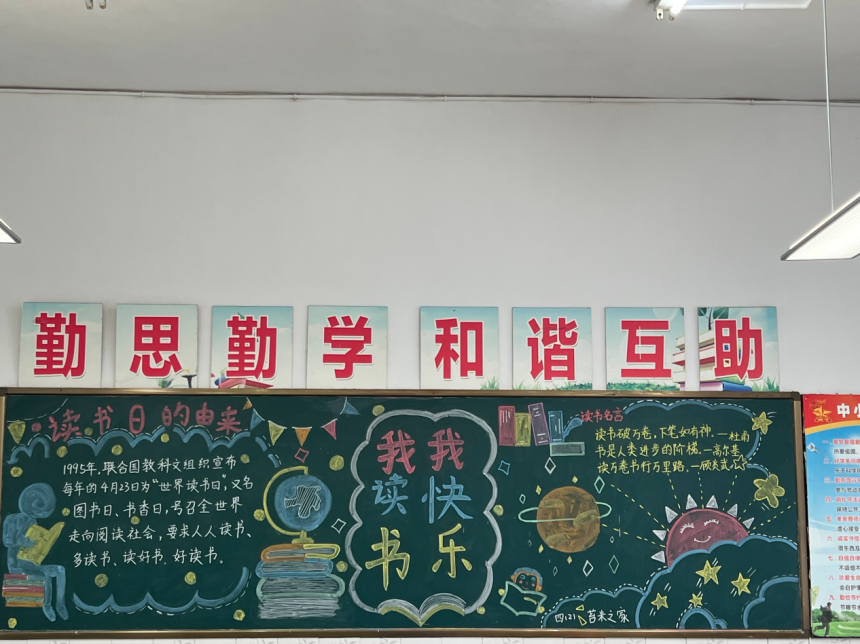 勤思勤学 和谐互助
读书日的由来
1995年,联合国教科文组织宣布
每年的4月23日为“世界读书日”,又名
图书日、书香日,号召全世界
走向阅读社会,要求人人读书、
多读书、读好书、好读书。
我读书
我快乐
读书名言
读书破万卷,下笔如有神.—杜甫
书是人类进步的阶梯.—高尔基
读万卷书行万里路.—顾炎武
四(2) 苔未之家